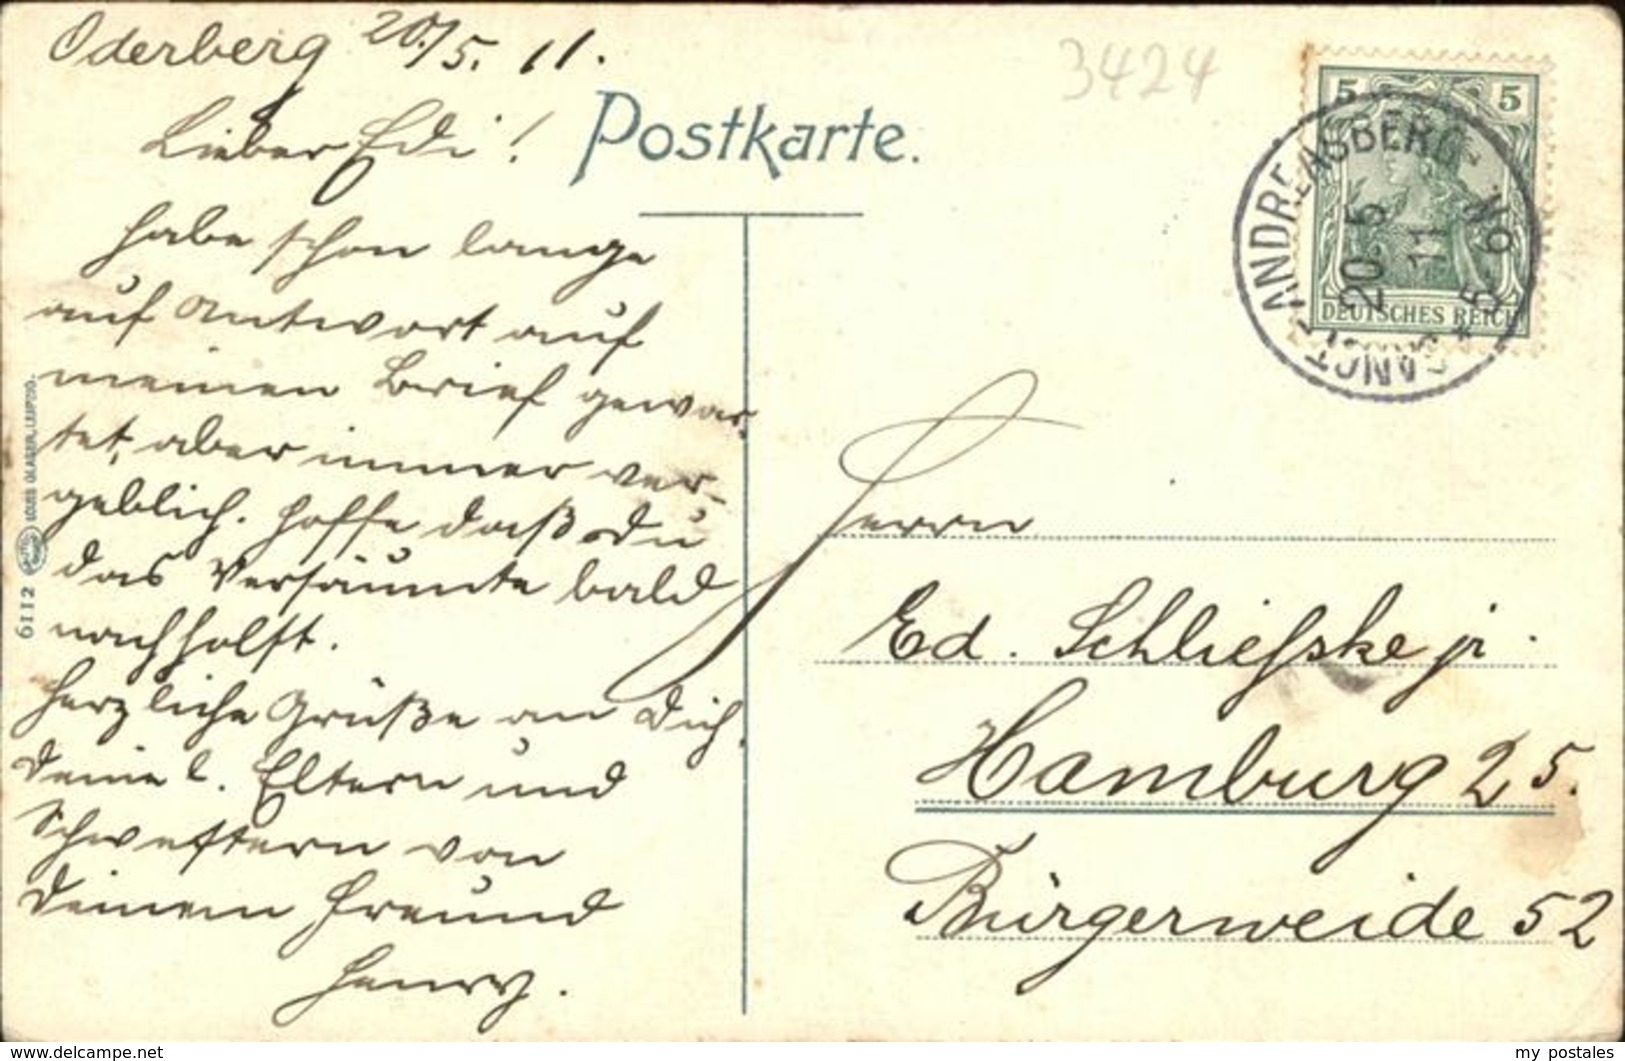 Oderberg 20./5. 11.
Lieber Edi!
Habe schon lange
auf Antwort auf
meinen Brief gewar-
tet, aber immer ver-
geblich. Hoffe daß Du
das Versäumte bald
nachholst.
Herzliche Grüße an Dich,
Deine l. Eltern und
Schwestern von
Deinem Freund
Henry.
Postkarte.
3424
5 5
DEUTSCHES REICH
SANCT ANDREASBERG
20.5
11
5-6N.
Herrn
Ed. Schliefske jr.
Hamburg 25.
Bürgerweide 52
6112 LOUIS GLASER, LEIPZIG.
my postales
www.delcampe.net